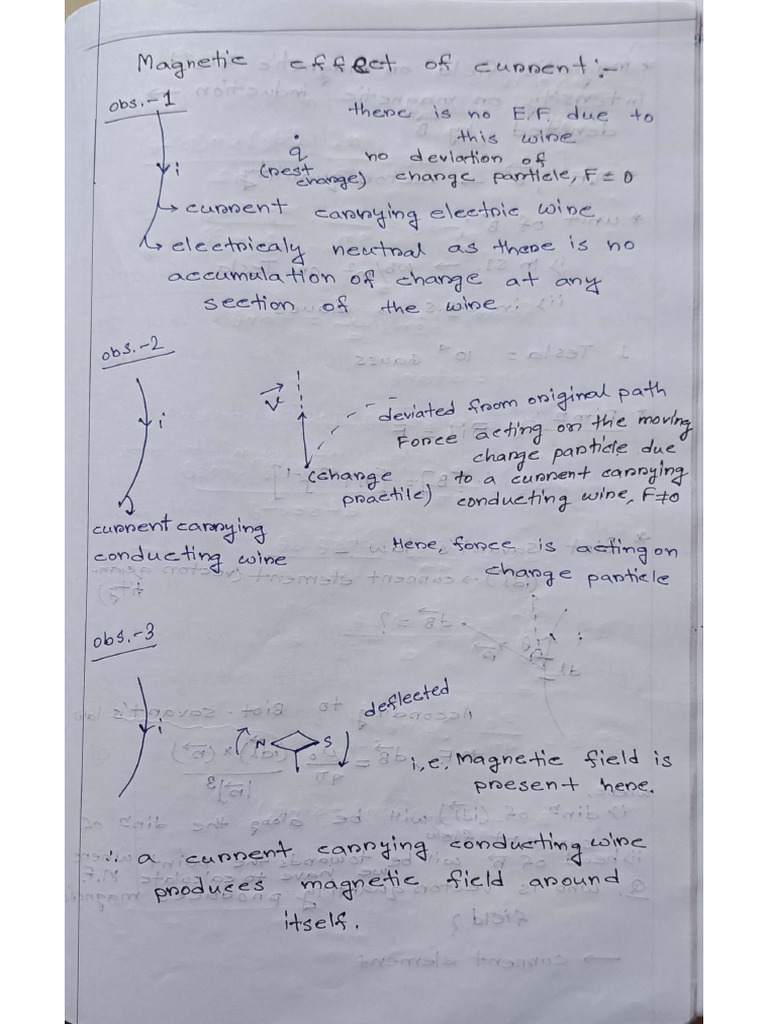 Magnetic effect of current :-
obs.-1
there is no E.F. due to
this wire
q
no deviation of
(rest
charge)
charge particle, F = 0
i
→ current carrying electric wire
→ electricaly neutral as there is no
accumulation of charge at any
section of the wire.
obs.-2
v
i
deviated from original path
Force acting on the moving
charge particle due
(charge
practile)
to a current carrying
conducting wire, F≠0
current carrying
conducting wire
Here, force is acting on
charge particle
obs.-3
deflected
i
N S
i.e. Magnetic field is
present here.
∴ a current carrying conducting wire
produces magnetic field around
itself.